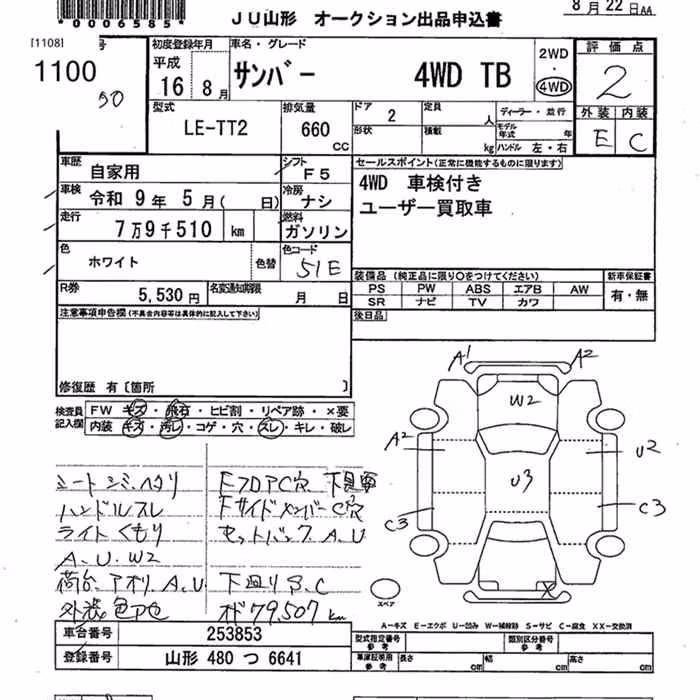 *0006585*
JU山形 オークション出品申込書
8月22日AA
[1108]
号
1100
50
初度登録年月
平成
16 8月
車名・グレード
サンバー 4WD TB
2WD
・
4WD
評価点
2
外装 内装
E C
型式
LE-TT2
排気量
660
cc
ドア
2
形状
定員
人
積載
kg
ディーラー・並行
モデル年式 年
ハンドル 左・右
車歴
自家用
シフト
F5
車検
令和 9年 5月( 日)
冷房
ナシ
走行
7万9千510 km
燃料
ガソリン
色
ホワイト
色替
色コード
51E
セールスポイント(正常に機能するものに限ります)
4WD 車検付き
ユーザー買取車
R券
5,530円
名変通知期限
月 日
装備品 (純正品に限り○をつけてください)
PS PW ABS エアB AW
SR ナビ TV カワ
新車保証書
有・無
後日品
注意事項申告欄(不具合内容等は具体的に記入して下さい)
修復歴 有〔箇所 〕
検査員記入欄
FW キズ・飛石・ヒビ割・リペア跡・×要
内装 キズ・汚レ・コゲ・穴・スレ・キレ・破レ
シートシミ、ヘタリ
ハンドルスレ
ライトくもり
A、U、W2
荷台、アオリ、A、U
外装色アセ
FフロアC穴 下見要
FサイドメンバーC穴
セットバック A、U
下回りS、C
オド79,507km
A1
A2
W2
A2
U2
U3
C3
C3
X
スペア
A-キズ E-エクボ U-凹み W-補修跡 S-サビ C-腐食 XX-交換済
車台番号 253853
登録番号 山形 480 つ 6641
型式指定番号
参考
類別区分番号
参考
車庫証明用
参考
長さ cm
幅 cm
高さ cm